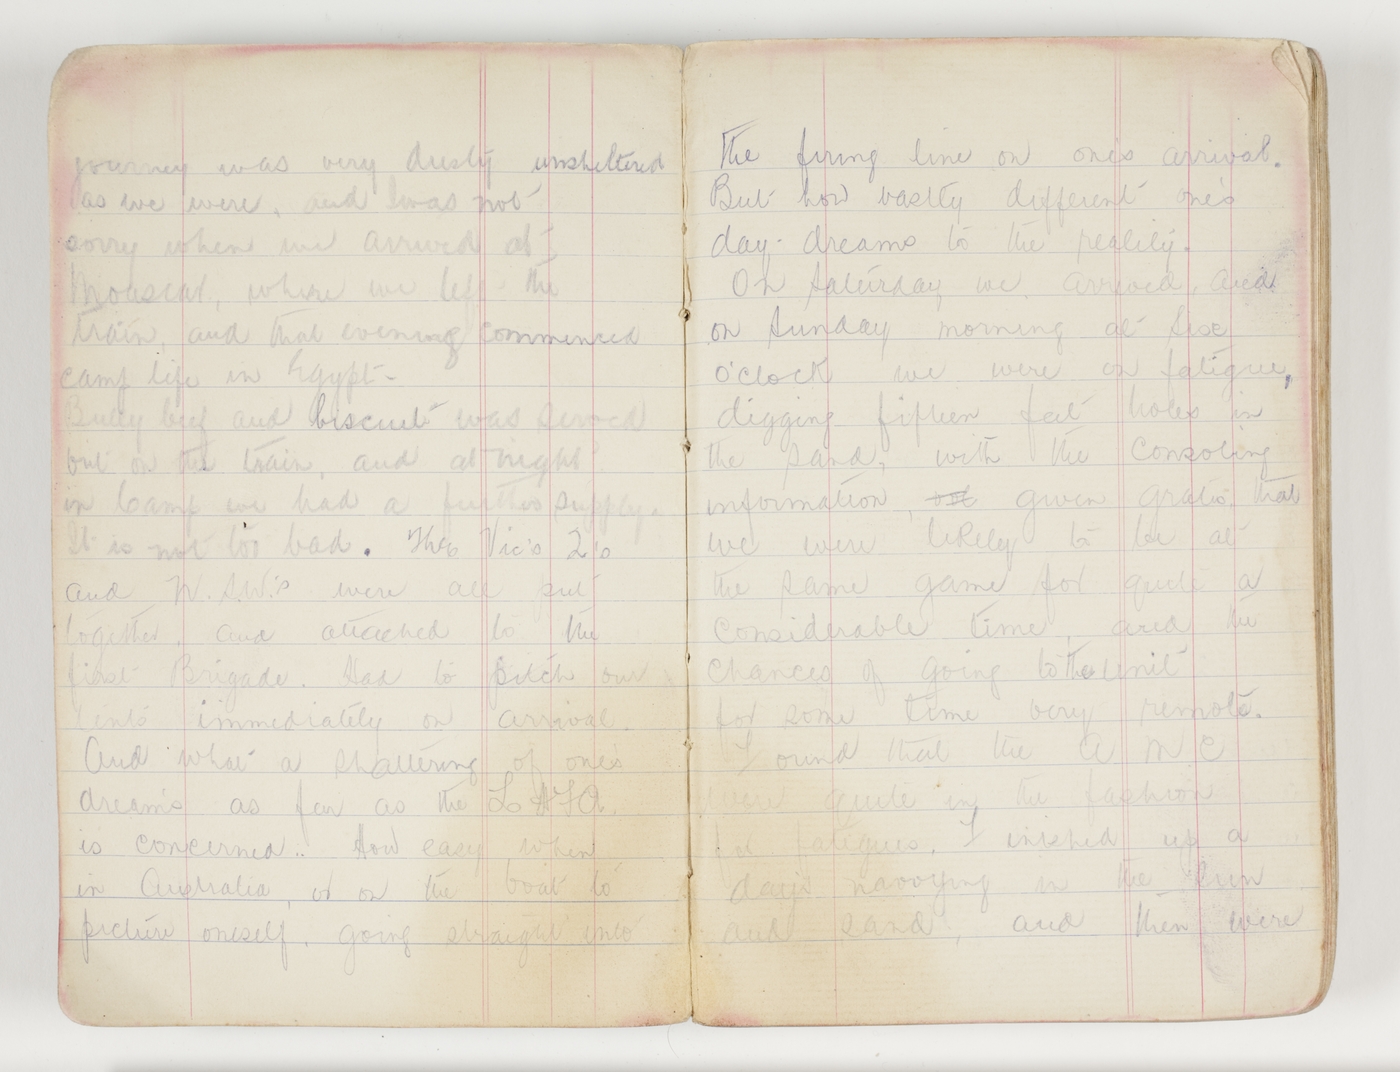 journey was very dusty unsheltered
as we were, and I was not
sorry when we arrived at
Mouscar, where we left the
train, and that evening commenced
camp life in Egypt-
Bully beef and biscuit was served
out on the train, and at night
in Camp we had a further supply.
It is not too bad. The Vic's 2's
and N.S.W.'s were all put
together, and attached to the
first Brigade. Had to pitch our
tents immediately on arrival.
And what a shattering of one's
dreams as far as the
is concerned.. How easy when
in Australia, or on the boat to
picture oneself, going straight into
The firing line on one's arrival.
But how vastly different one's
day-dreams to the reality.
On Saturday we arrived, and
on Sunday morning at six
o'clock we were on fatigue,
digging fifteen feet holes in
the sand, with the consoling
information, given gratis that
we were likely to be at
the same game for quite a
considerable time, and the
chances of going to the unit
for some time very remote.
Found that the A M C
were quite in the fashion
for fatigues. Finished up a
day's navvying in the sun
and sand, and then were